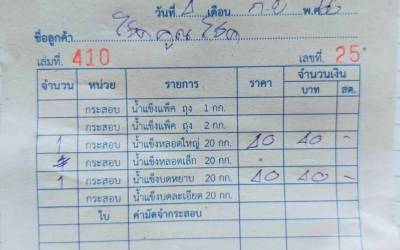 วันที่ เดือน ก.ย พ.ศ.
ชื่อลูกค้า โชคคูณโชค
เล่มที่ 410 เลขที่ 25
จำนวน หน่วย รายการ ราคา จำนวนเงิน
บาท สต.
กระสอบ น้ำแข็งแพ็ค ถุง 1 กก.
กระสอบ น้ำแข็งแพ็ค ถุง 2 กก.
1 กระสอบ น้ำแข็งหลอดใหญ่ 20 กก. 40 40 -
กระสอบ น้ำแข็งหลอดเล็ก 20 กก.
1 กระสอบ น้ำแข็งบดหยาบ 20 กก. 40 40 -
กระสอบ น้ำแข็งบดละเอียด 20 กก.
ใบ ค่ามัดจำกระสอบ